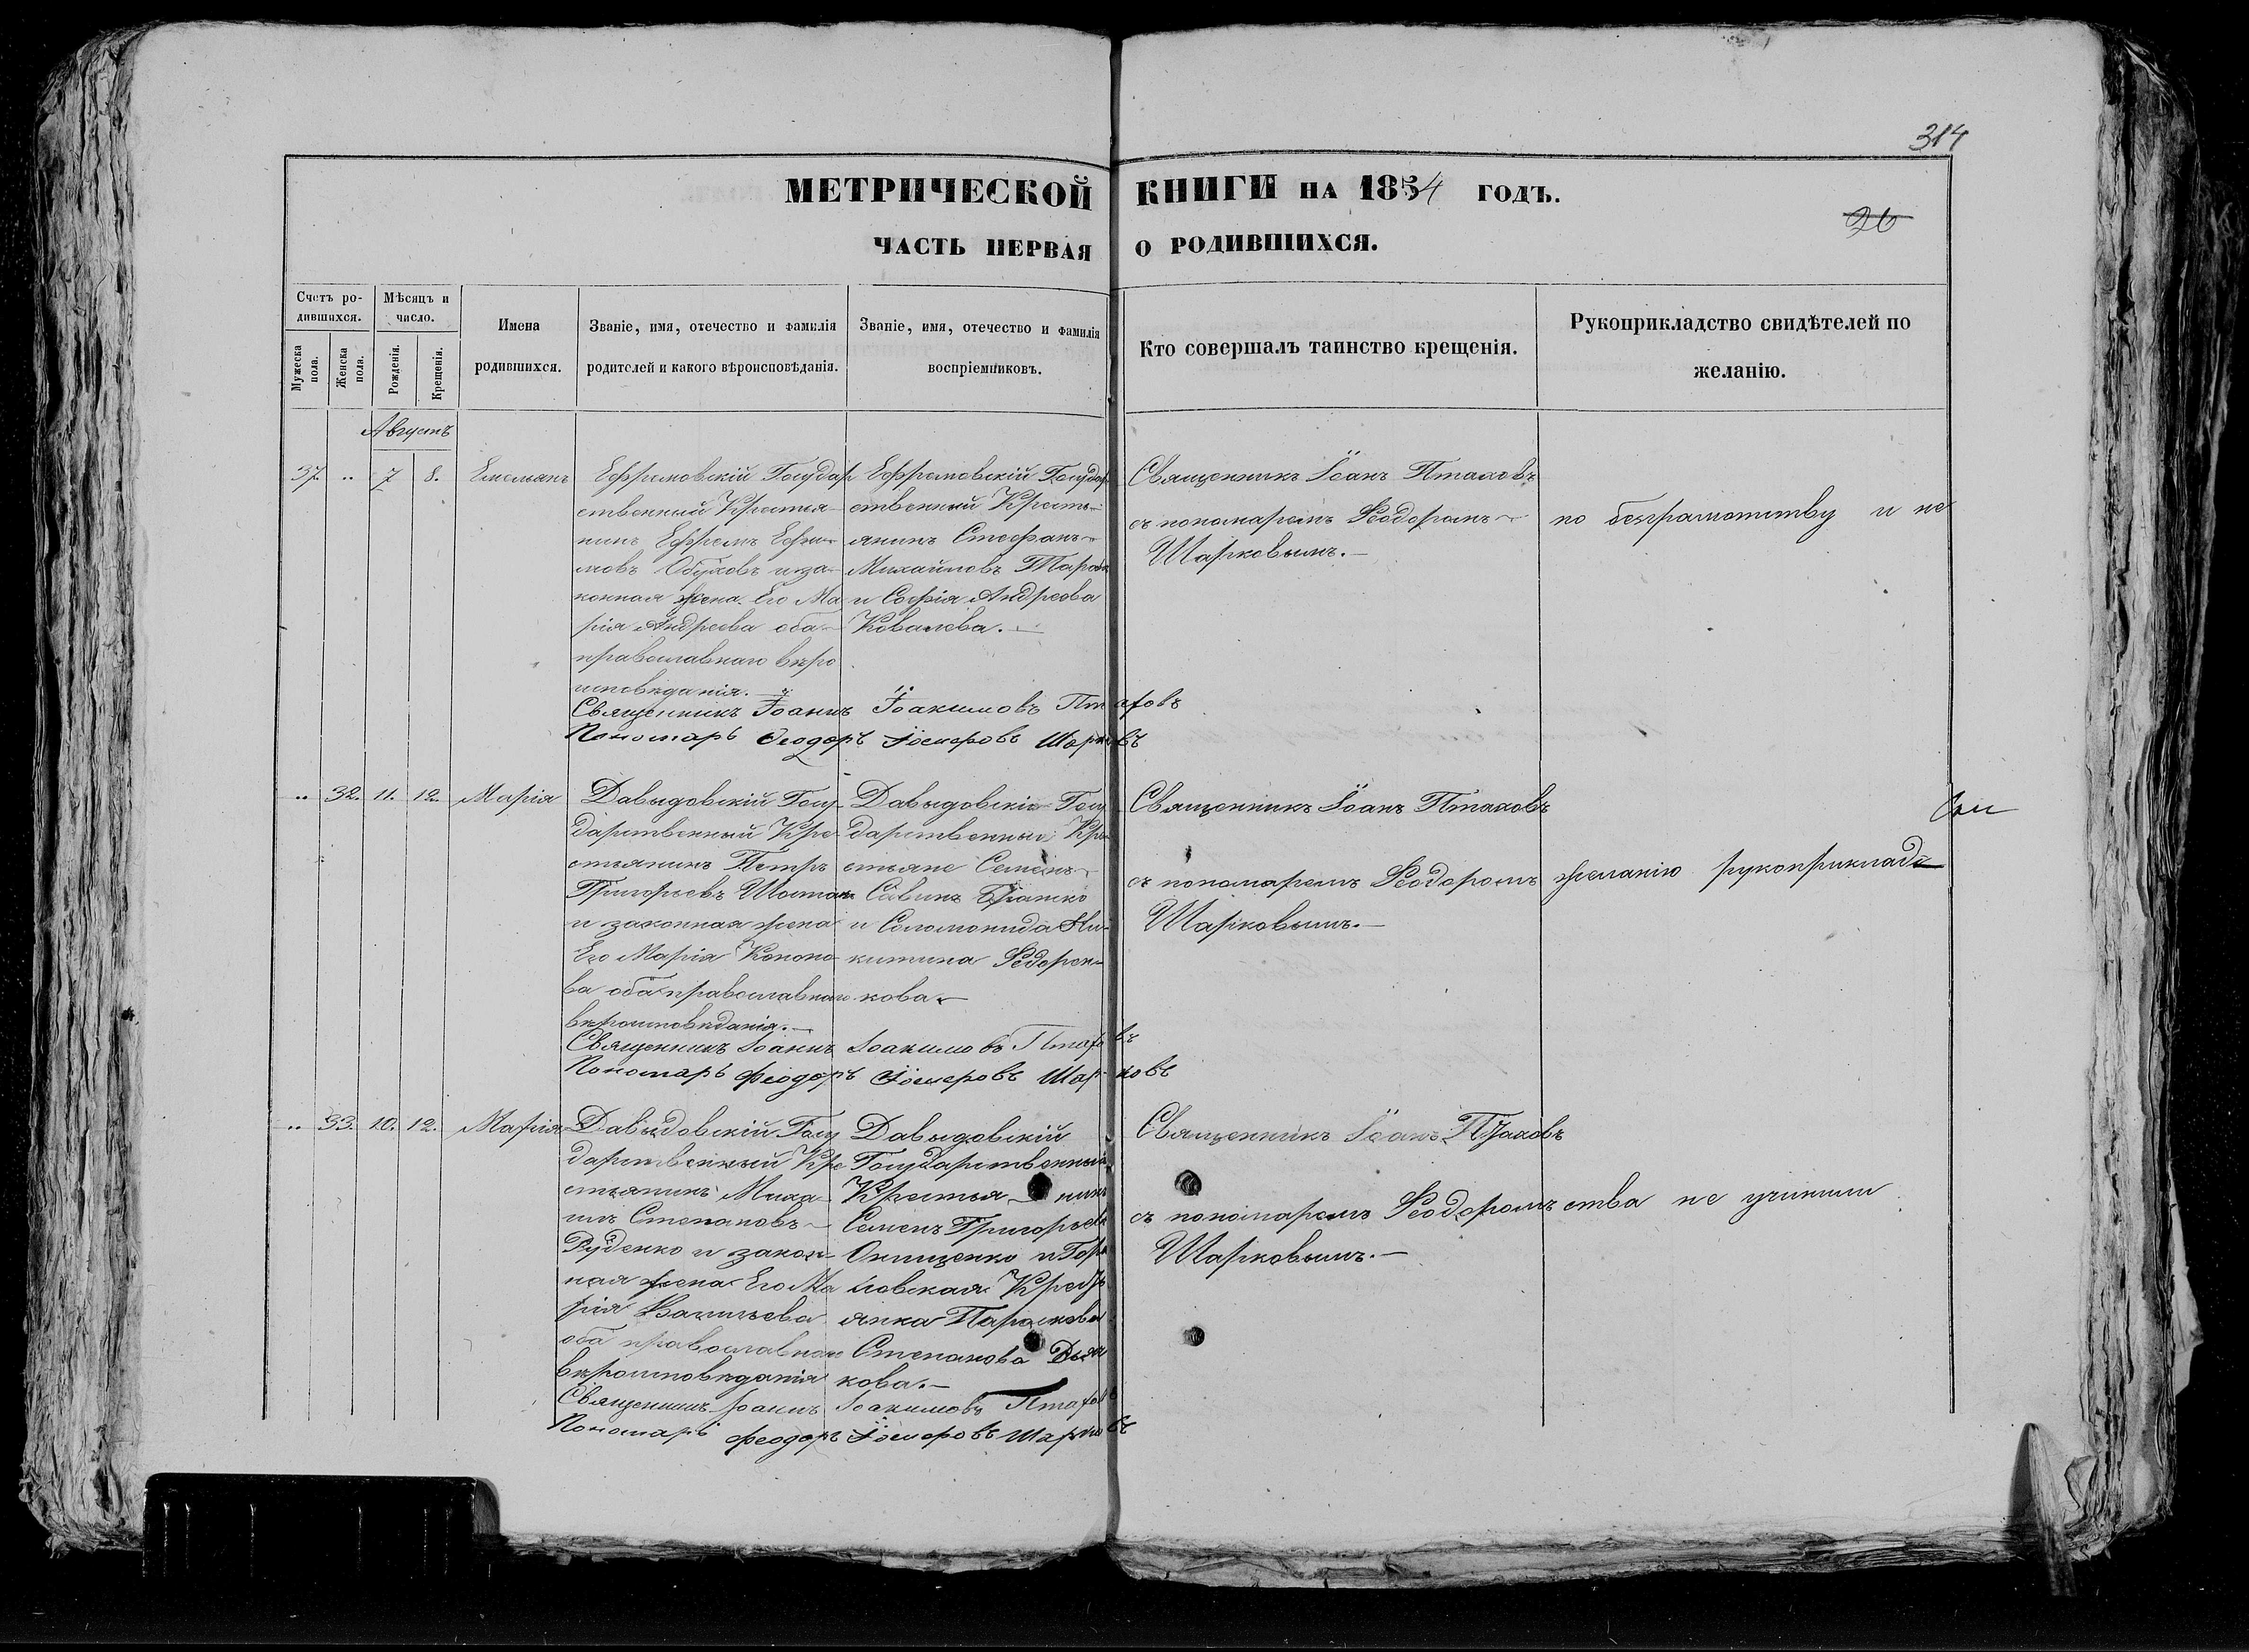 314
МЕТРИЧЕСКОЙ КНИГИ НА 1854 ГОДЪ.
26
ЧАСТЬ ПЕРВАЯ О РОДИВШИХСЯ.
Счетъ ро-
дившихся.
Мужеска пола.
Женска пола.
Мѣсяцъ и
число.
Рожденія.
Крещенія.
Имена
родившихся.
Званіе, имя, отечество и фамилія
родителей и какого вѣроисповѣданія.
Званіе, имя, отечество и фамилія
воспріемниковъ.
Кто совершалъ таинство крещенія.
Рукоприкладство свидѣтелей по
желанію.
Августъ
37. .. 7 8. Емельянъ
Ефремовскій Государ
ственный Крестья-
нинъ Ефремъ Ефи-
мовъ Обуховъ и за-
конная жена Его Ма
рія Андреева оба
православнаго вѣро
исповѣданія.
Ефремовскій Государ
ственный Кресть-
янинъ Стефанъ
Михайловъ
и Софія Андреева
Ковалева.
Священникъ Іоанъ Птаховъ
съ пономаремъ Ѳеодоромъ
Шарковымъ.
по безграмотству и не
Священникъ Іоаннъ Іоакимовъ Птаховъ
Пономарь Ѳеодоръ Шарковъ
.. 32. 11. 12. Марія
Давыдовскій Госу-
дарственный Кре-
стьянинъ Петръ
Григорьевъ
и законная жена
Его Марія Конono-
ва оба православнаго
вѣроисповѣданія.
Давыдовскіе Госу
дарственные Кре
стьяне Семенъ
Савинъ
и Соломонида Ни-
китина Федорен-
кова.
Священникъ Іоанъ Птаховъ
съ пономаремъ Ѳеодоромъ
Шарковымъ.
желанію рукоприклад
Священникъ Іоаннъ Іоакимовъ Птаховъ
Пономарь Феодоръ Шарковъ
.. 33. 10. 12. Марія
Давыдовскій Госу
дарственный Кре
стьянинъ Миха-
илъ Степановъ
Руденко и закон-
ная жена Его Ма
рія Васильева
оба православнаго
вѣроисповѣданія
Давыдовскій
Государственный
Крестья- нинъ
Семенъ Григорьевъ
Онищенко и
ловская Кресть
янка Параскева
Степанова
кова.
Священникъ Іоанъ Птаховъ
съ пономаремъ Ѳеодоромъ
Шарковымъ.
ства не учинили
Священникъ Іоаннъ Іоакимовъ Птаховъ
Пономарь Феодоръ Шарковъ